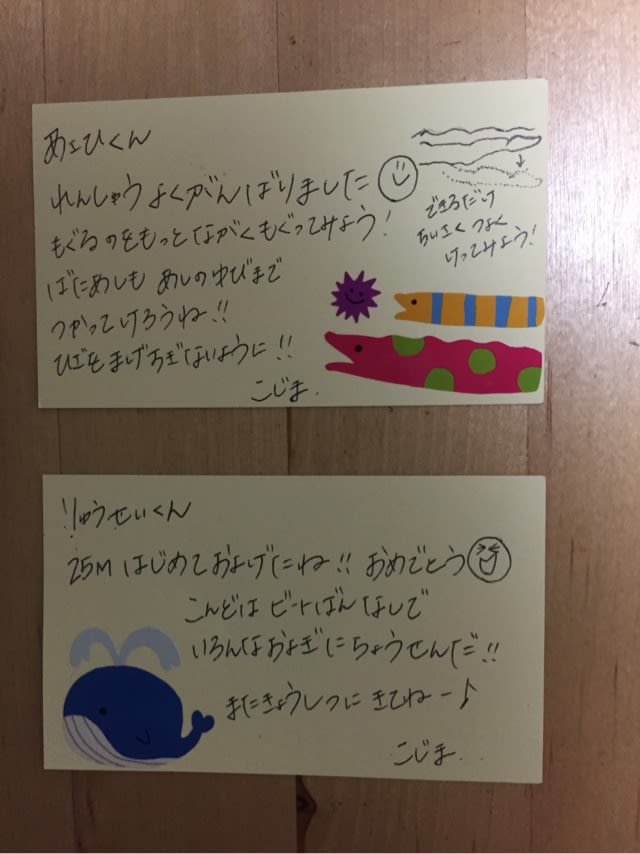 くん
れんしゅうよくがんばりました
もぐるのをもっとながくもぐってみよう!
ばたあしも あしのゆびまで
つかってけろうね!!
ひざをまげすぎないように!!
こじま.
できるだけ
ちいさくつよく
けってみよう!
りゅうせいくん
25M はじめておよげたね!! おめでとう
こんどは ビートばんなしで
いろんなおよぎにちょうせんだ!!
またきょうしつに きてねー♪
こじま..